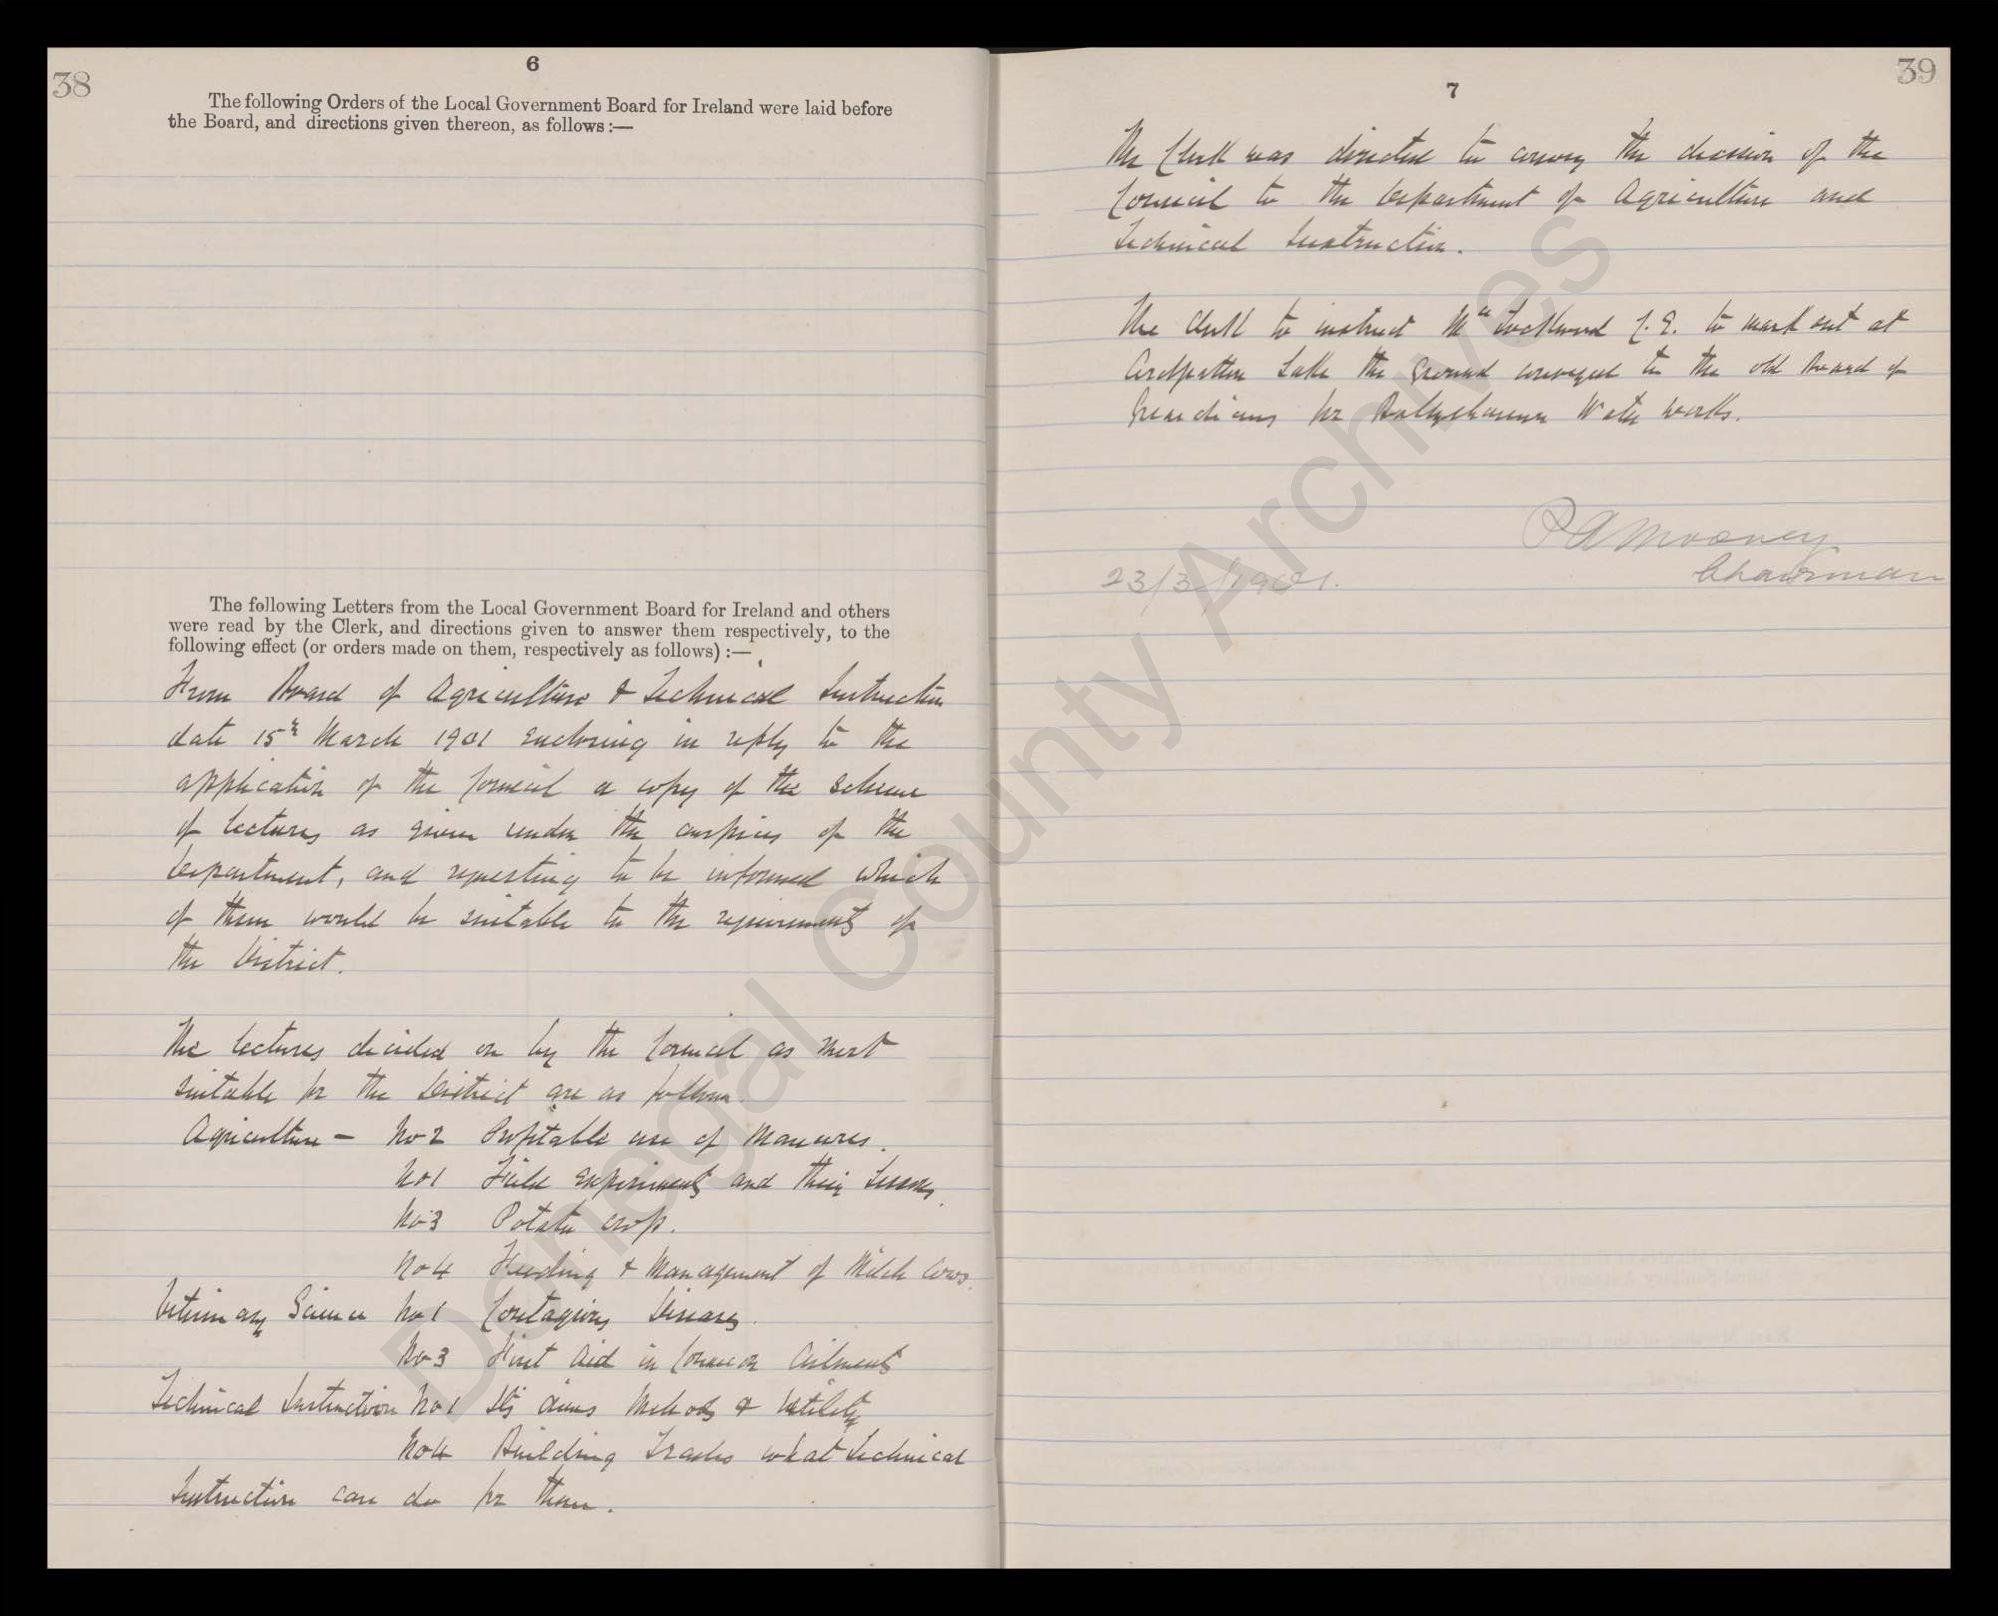 38
6
The following Orders of the Local Government Board for Ireland were laid before
the Board, and directions given thereon, as follows :—
The following Letters from the Local Government Board for Ireland and others
were read by the Clerk, and directions given to answer them respectively, to the
following effect (or orders made on them, respectively as follows) :—
From Board of Agriculture & Technical Instruction
date 15th March 1901 enclosing in reply to the
application of the Council a copy of the scheme
of lectures as given under the auspices of the
Department, and requesting to be informed which
of them would be suitable to the requirements of
the District.
The lectures decided on by the Council as most
suitable for the District are as follows.
Agriculture — No 2 Profitable use of Manures.
No 1 Field experiments and their Lessons.
No 3 Potato crop.
No 4 Feeding & Management of Milch Cows.
Veterinary Science No 1 Contagious Diseases.
No 3 First Aid in Common Ailments
Technical Instruction No 1 Its Aims Methods & Utility
No 4 Building Trades what Technical
Instruction can do for them.
39
7
The Clerk was directed to convey the decision of the
Council to the Department of Agriculture and
Technical Instruction.
The Clerk to instruct Mr Lockwood C.E. to mark out at
Lake the Ground conveyed to the old Board of
Guardians for Ballyshannon Water works.
P A Mooney
Chairman
23/3/1901.
Donegal County Archives